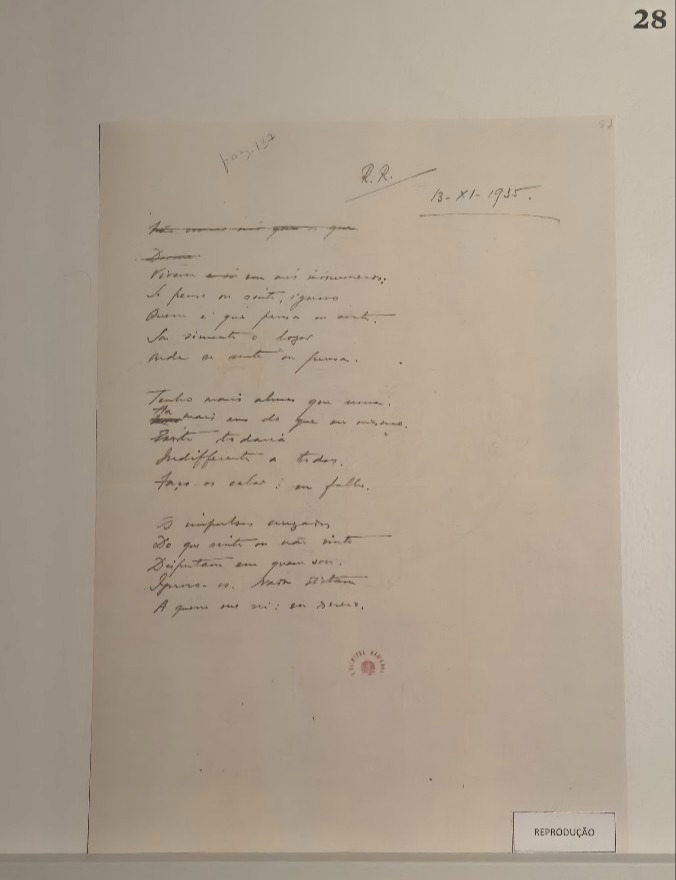 28
pag. 137
R.R.
13-XI-1935.
Vivem em nós innumeros;
Se penso ou sinto, ignoro
Quem é que pensa ou sente.
Sou somente o logar
Onde se sente ou pensa.
Tenho mais almas que uma.
Ha mais eus do que eu mesmo.
Existo todavia
Indifferente a todos.
Faço-os calar: eu fallo.
Os impulsos cruzados
Do que sinto ou não sinto
Disputam em quem sou.
Ignoro-os. Nada dictam
A quem me sei: eu screvo.
REPRODUÇÃO